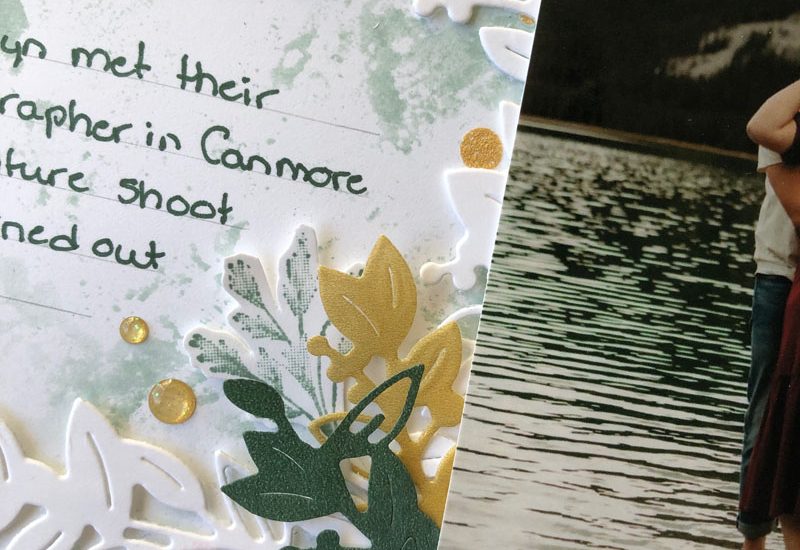 yn met their
rapher in Canmore
ture shoot
ned out